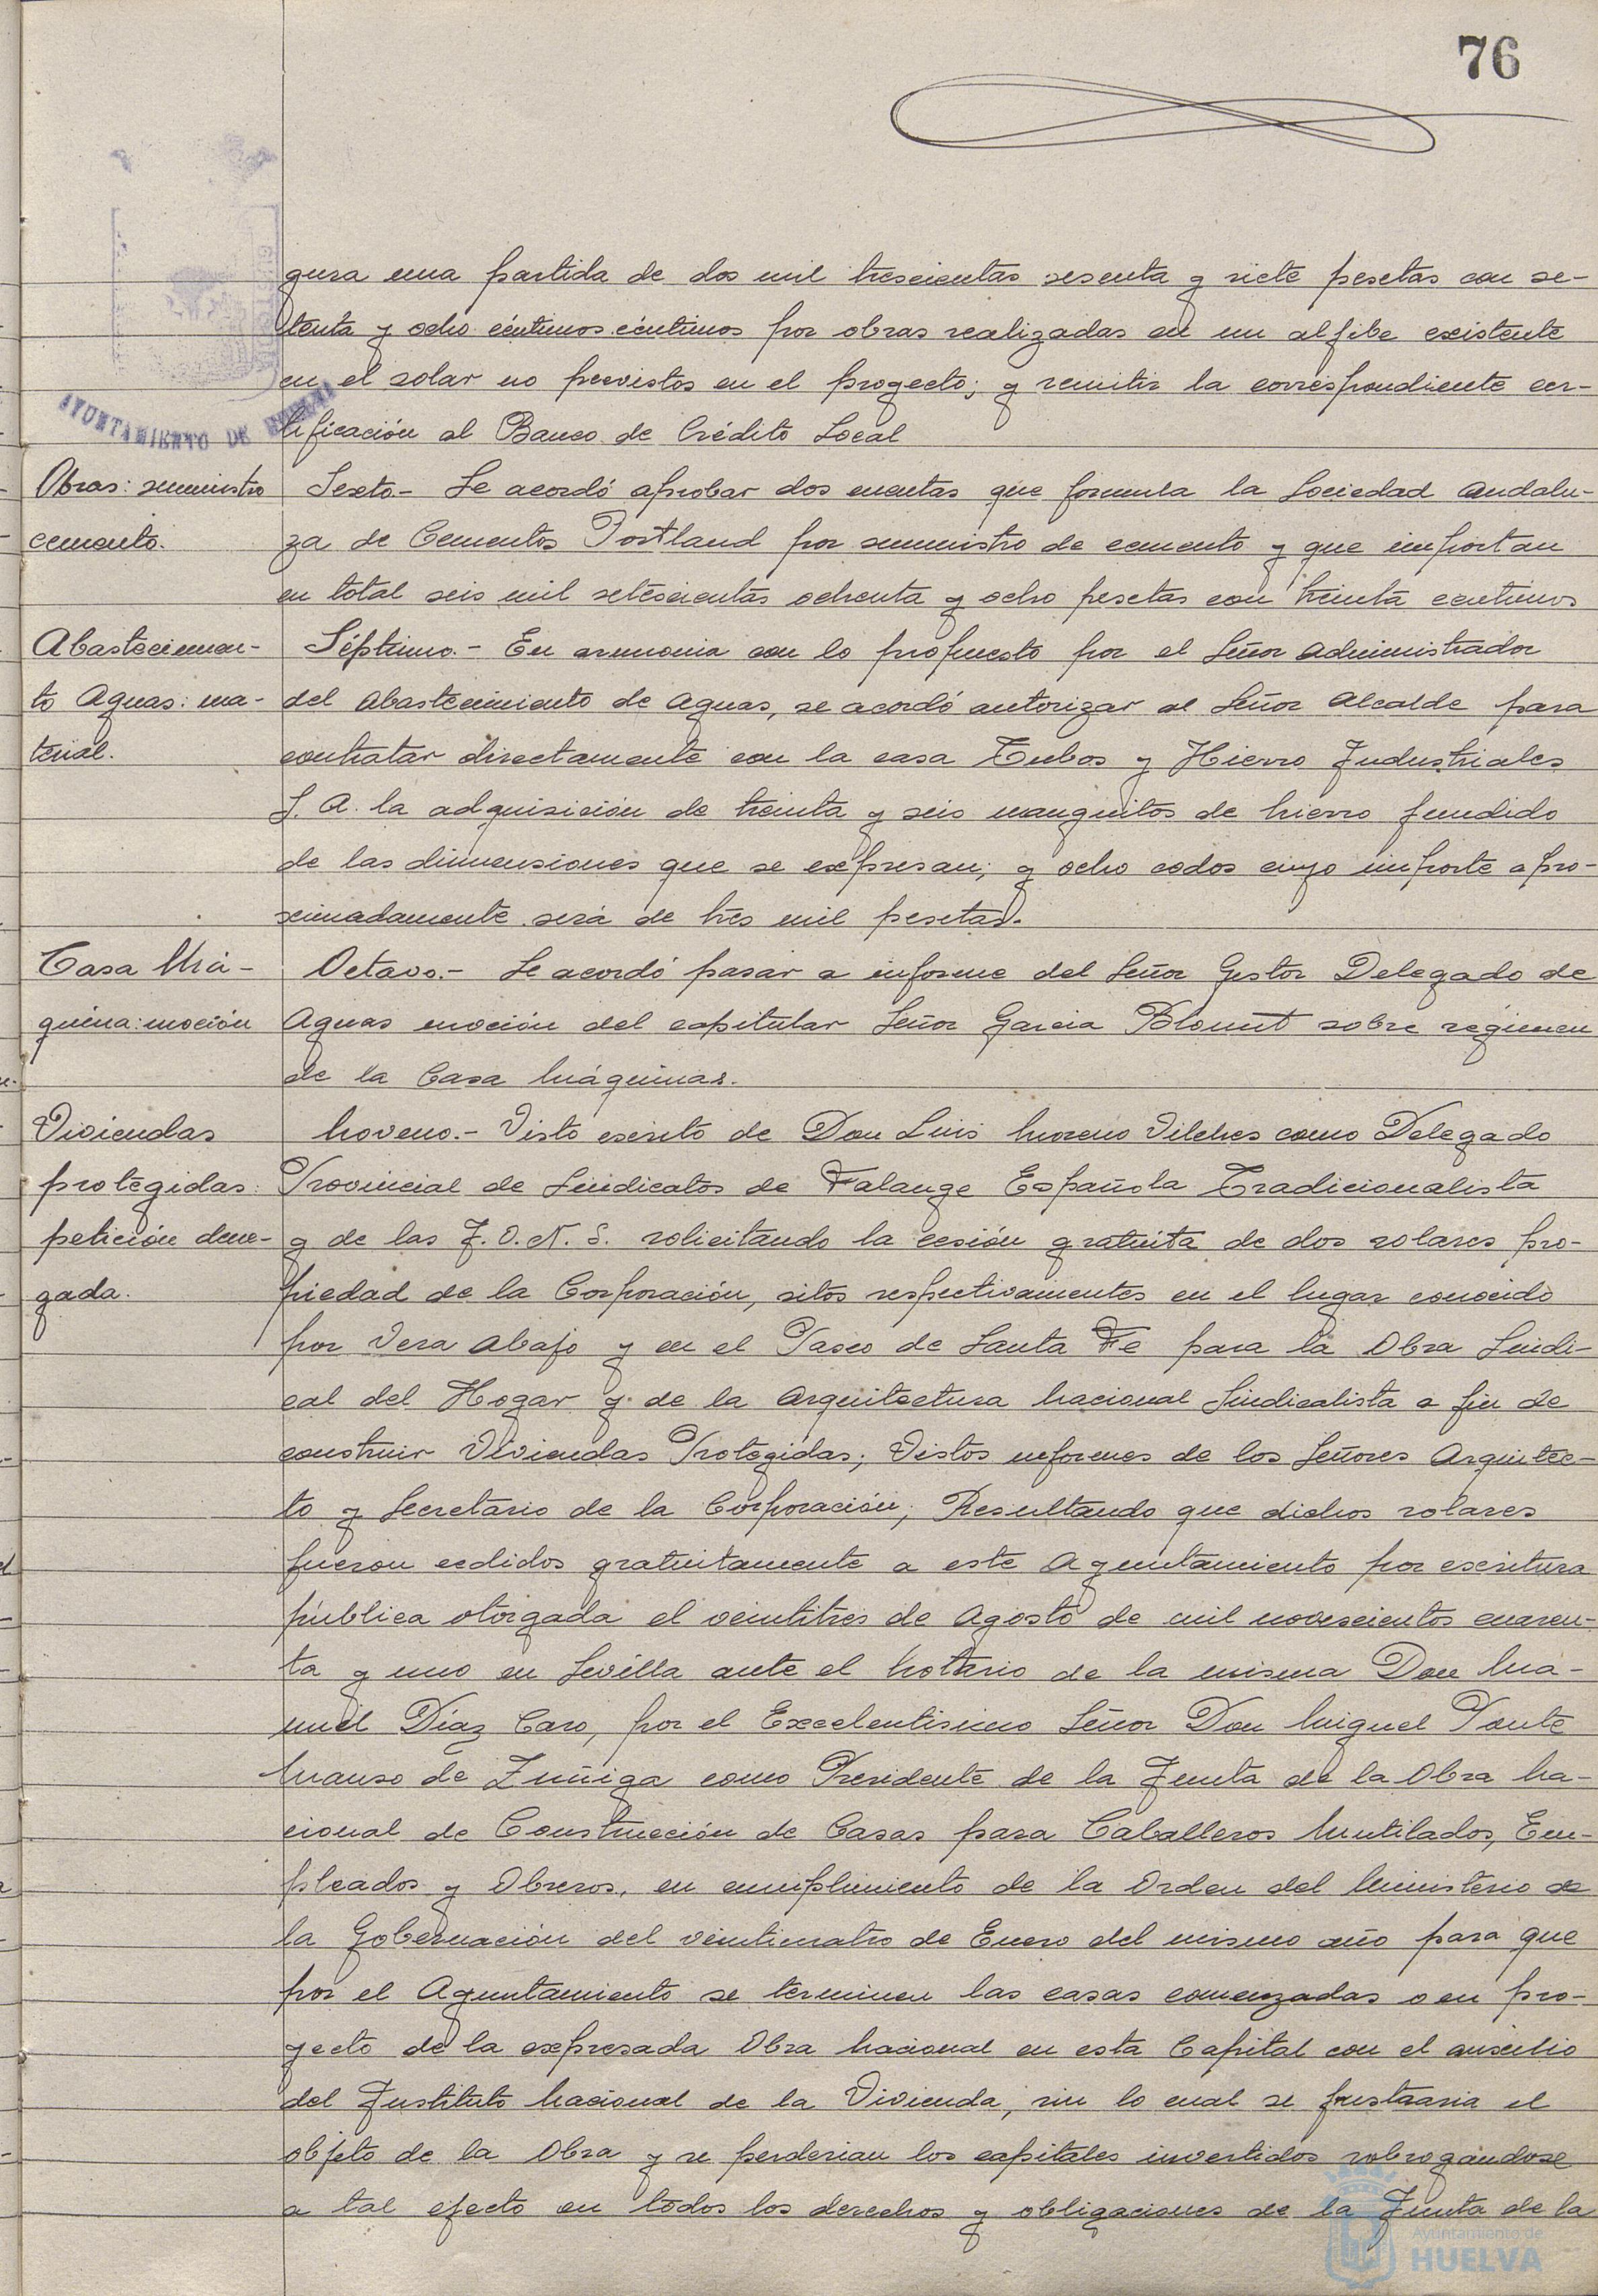 76
gura una partida de dos mil trescientas sesenta y siete pesetas con se-
tenta y ocho céntimos céntimos por obras realizadas en un alfibe existente
en el solar no previstos en el proyecto; y remitir la correspondiente cer-
AYUNTAMIENTO DE HUELVA
tificación al Banco de Crédito Local
Obras: suministro
cemento.
Sexto.- Se acordó aprobar dos cuentas que formula la Sociedad Andalu-
za de Cementos Portland por suministro de cemento y que importan
en total seis mil setescientas ochenta y ocho pesetas con treinta centimos
Abastecimien-
to Aguas: ma-
terial.
Séptimo.- En armonia con lo propuesto por el Señor Administrador
del Abastecimiento de Aguas, se acordó autorizar al Señor Alcalde para
contratar directamente con la casa Tubos y Hierro Industriales
S. A. la adquisición de treinta y seis manguitos de hierro fundido
de las dimensiones que se expresan; y ocho codos cuyo importe apro-
ximadamente será de tres mil pesetas.
Casa Má-
quina: moción
Octavo.- Se acordó pasar a informe del Señor Gestor Delegado de
Aguas moción del capitular Señor Garcia Blount sobre régimen
de la Casa Máquinas.
Viviendas
protegidas:
petición dene-
gada.
Noveno.- Visto escrito de Don Luis Moreno Vilches como Delegado
Provincial de Sindicatos de Falange Española Tradicionalista
y de las J.O.N.S. solicitando la cesión gratuita de dos solares pro-
piedad de la Corporación, sitos respectivamentes en el lugar conocido
por Vera Abajo y en el Paseo de Santa Fe para la Obra Sindi-
cal del Hogar y de la Arquitectura Nacional Sindicalista a fin de
construir Viviendas Protegidas; Vistos informes de los Señores Arquitec-
to y Secretario de la Corporación; Resultando que dichos solares
fueron cedidos gratuitamente a este Ayuntamiento por escritura
pública otorgada el veintitres de Agosto de mil novescientos cuaren-
ta y uno en Sevilla ante el Notario de la misma Don Ma-
nuel Díaz Caro, por el Excelentisimo Señor Don Miguel Ponte
Manso de Zuñiga como Presidente de la Junta de la Obra Na-
cional de Construcción de Casas para Caballeros Mutilados, Em-
pleados y Obreros, en cumplimiento de la Orden del Ministerio de
la Gobernación del veinticuatro de Enero del mismo año para que
por el Ayuntamiento se terminen las casas comenzadas o en pro-
yecto de la expresada Obra Nacional en esta Capital con el auxilio
del Instituto Nacional de la Vivienda, sin lo cual se frustraria el
objeto de la Obra y se perderian los capitales invertidos subrogandose
a tal efecto en todos los derechos y obligaciones de la Junta de la
Ayuntamiento de
HUELVA